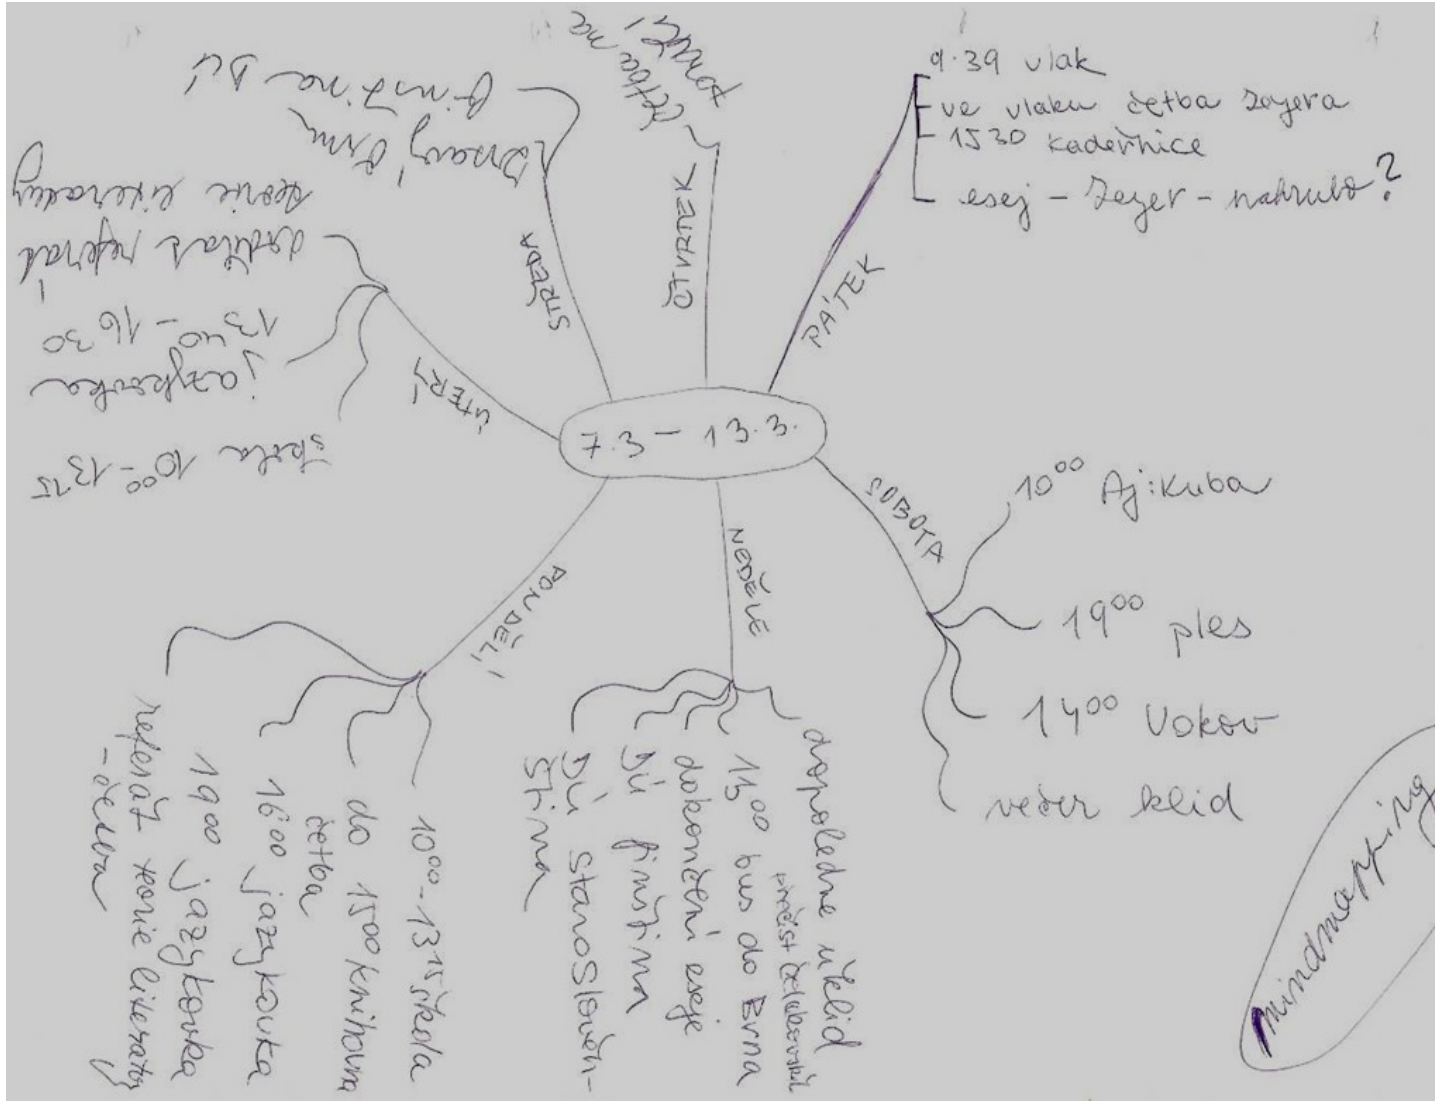 7.3 – 13.3.
PONDĚLÍ
10⁰⁰-13¹⁵ škola
do 15⁰⁰ knihovna
četba
16⁰⁰ jazykovka
19⁰⁰ jazykovka
referát teorie literatury
ÚTERÝ
škola 10⁰⁰-13¹⁵
jazykovka
13⁴⁰ - 16³⁰
dodělat referát
teorie literatury
STŘEDA
finština DÚ
ČTVRTEK
četba na
PÁTEK
9.39 vlak
ve vlaku četba Zeyera
15³⁰ kadeřnice
esej - Zeyer - nahrubo?
SOBOTA
10⁰⁰ Aj: Kuba
19⁰⁰ ples
14⁰⁰ Vokov
večer klid
NEDĚLE
dopoledne úklid
přečíst
bus do Brna
dokončení eseje
DÚ finština
DÚ staroslověn-
ština
mindmapping